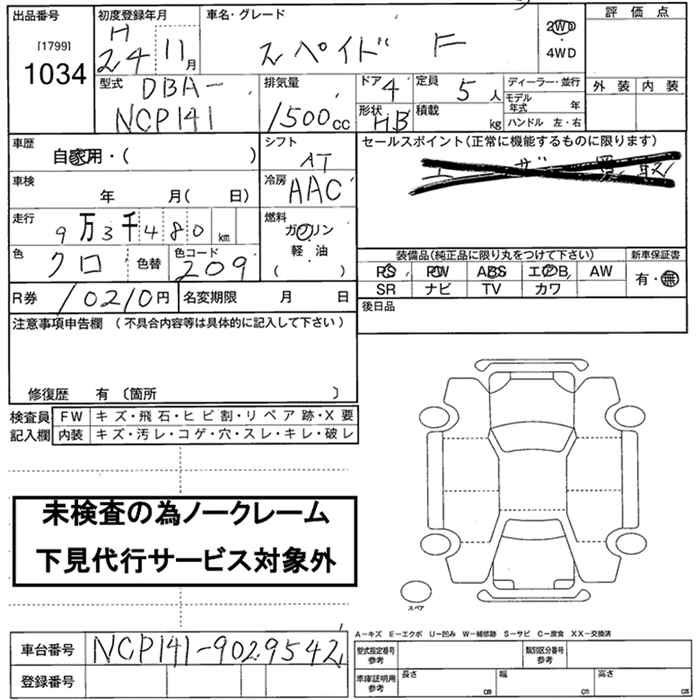 出品番号 初度登録年月 車名・グレード 評価点
[1799] H 24 11月 スペイド F 2WD・4WD
1034
型式 DBA- NCP141 排気量 1500cc ドア 4 定員 5人 ディーラー・並行 外装 内装
形状 HB 積載 kg モデル年式 年 ハンドル 左・右
車歴 自家用・( ) シフト AT セールスポイント(正常に機能するものに限ります)
車検 年 月( 日) 冷房 AAC
走行 9万3千480km 燃料 ガソリン 軽・油 ( )
色 クロ 色替 色コード 209
装備品(純正品に限り丸をつけて下さい) 新車保証書
PS PW ABS エアB AW 有・無
SR ナビ TV カワ
R券 10210円 名変期限 月 日 後日品
注意事項申告欄 (不具合内容等は具体的に記入して下さい)
修復歴 有 〔箇所 〕
検査員記入欄 FW キズ・飛石・ヒビ割・リペア跡・X要
内装 キズ・汚レ・コゲ・穴・スレ・キレ・破レ
未検査の為ノークレーム
下見代行サービス対象外
スペア
A−キズ E−エクボ U−凹み W−補修跡 S−サビ C−腐食 XX−交換済
車台番号 NCP141-9029542
登録番号
型式指定番号参考 類別区分番号参考
車庫証明用参考 長さ cm 幅 cm 高さ cm